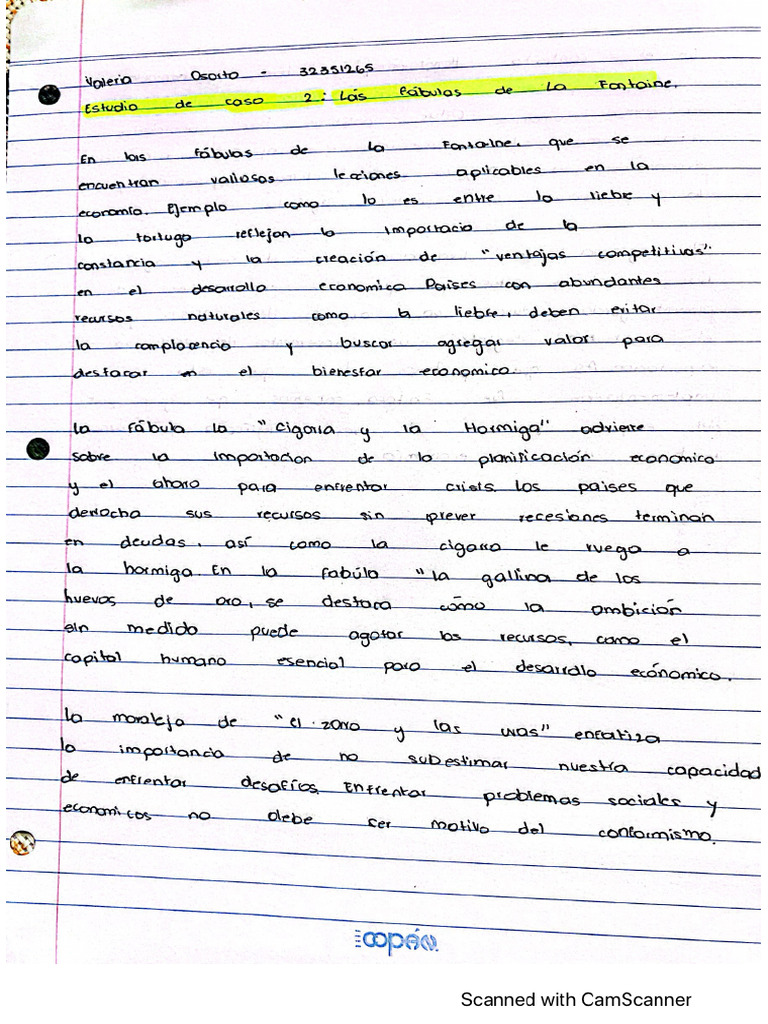 Valeria Osorto - 32351265
Estudio de caso 2: Las Fábulas de La Fontaine.
En las fábulas de La Fontaine, que se
encuentran valiosos lecciones aplicables en la
economía. Ejemplo como lo es entre la liebre y
la tortuga reflejan la importacia de la
constancia y la creación de "ventajas competitivas"
en el desarrollo economico Paises con abundantes
recursos naturales como la liebre, deben evitar
la complacencia y buscar agregar valor para
destacar en el bienestar economico
La fábula la "Cigarra y la Hormiga" advierte
sobre la importacion de la planificación economica
y el ahorro para enfrentar crisis. Los paises que
derrocha sus recursos sin prever recesiones terminan
en deudas, así como la cigarra le ruega a
la hormiga. En la fabúla "la gallina de los
huevos de oro, se destaca cómo la ambición
sin medida puede agotar los recursos, como el
capital humano esencial para el desarrollo ecónomico.
La moraleja de "el zorro y las uvas" enfatiza
la importancia de no subestimar nuestra capacidad
de enfrentar desafíos. Enfrentar problemas sociales y
economicos no debe ser motivo del conformismo.
copán
Scanned with CamScanner